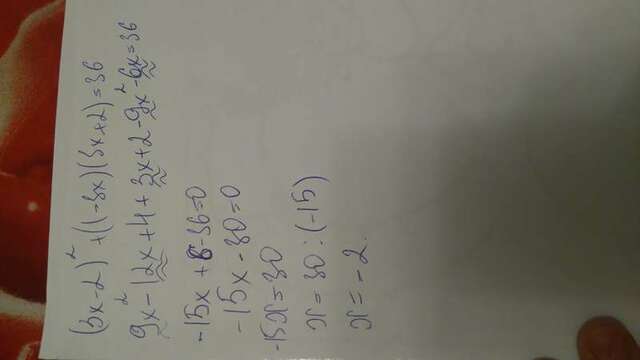 (3x-2)²+(1-3x)(3x+2)=36
9x²-12x+4+3x+2-9x²-6x=36
-15x+6-36=0
-15x-30=0
-15x=30
x=30:(-15)
x=-2.